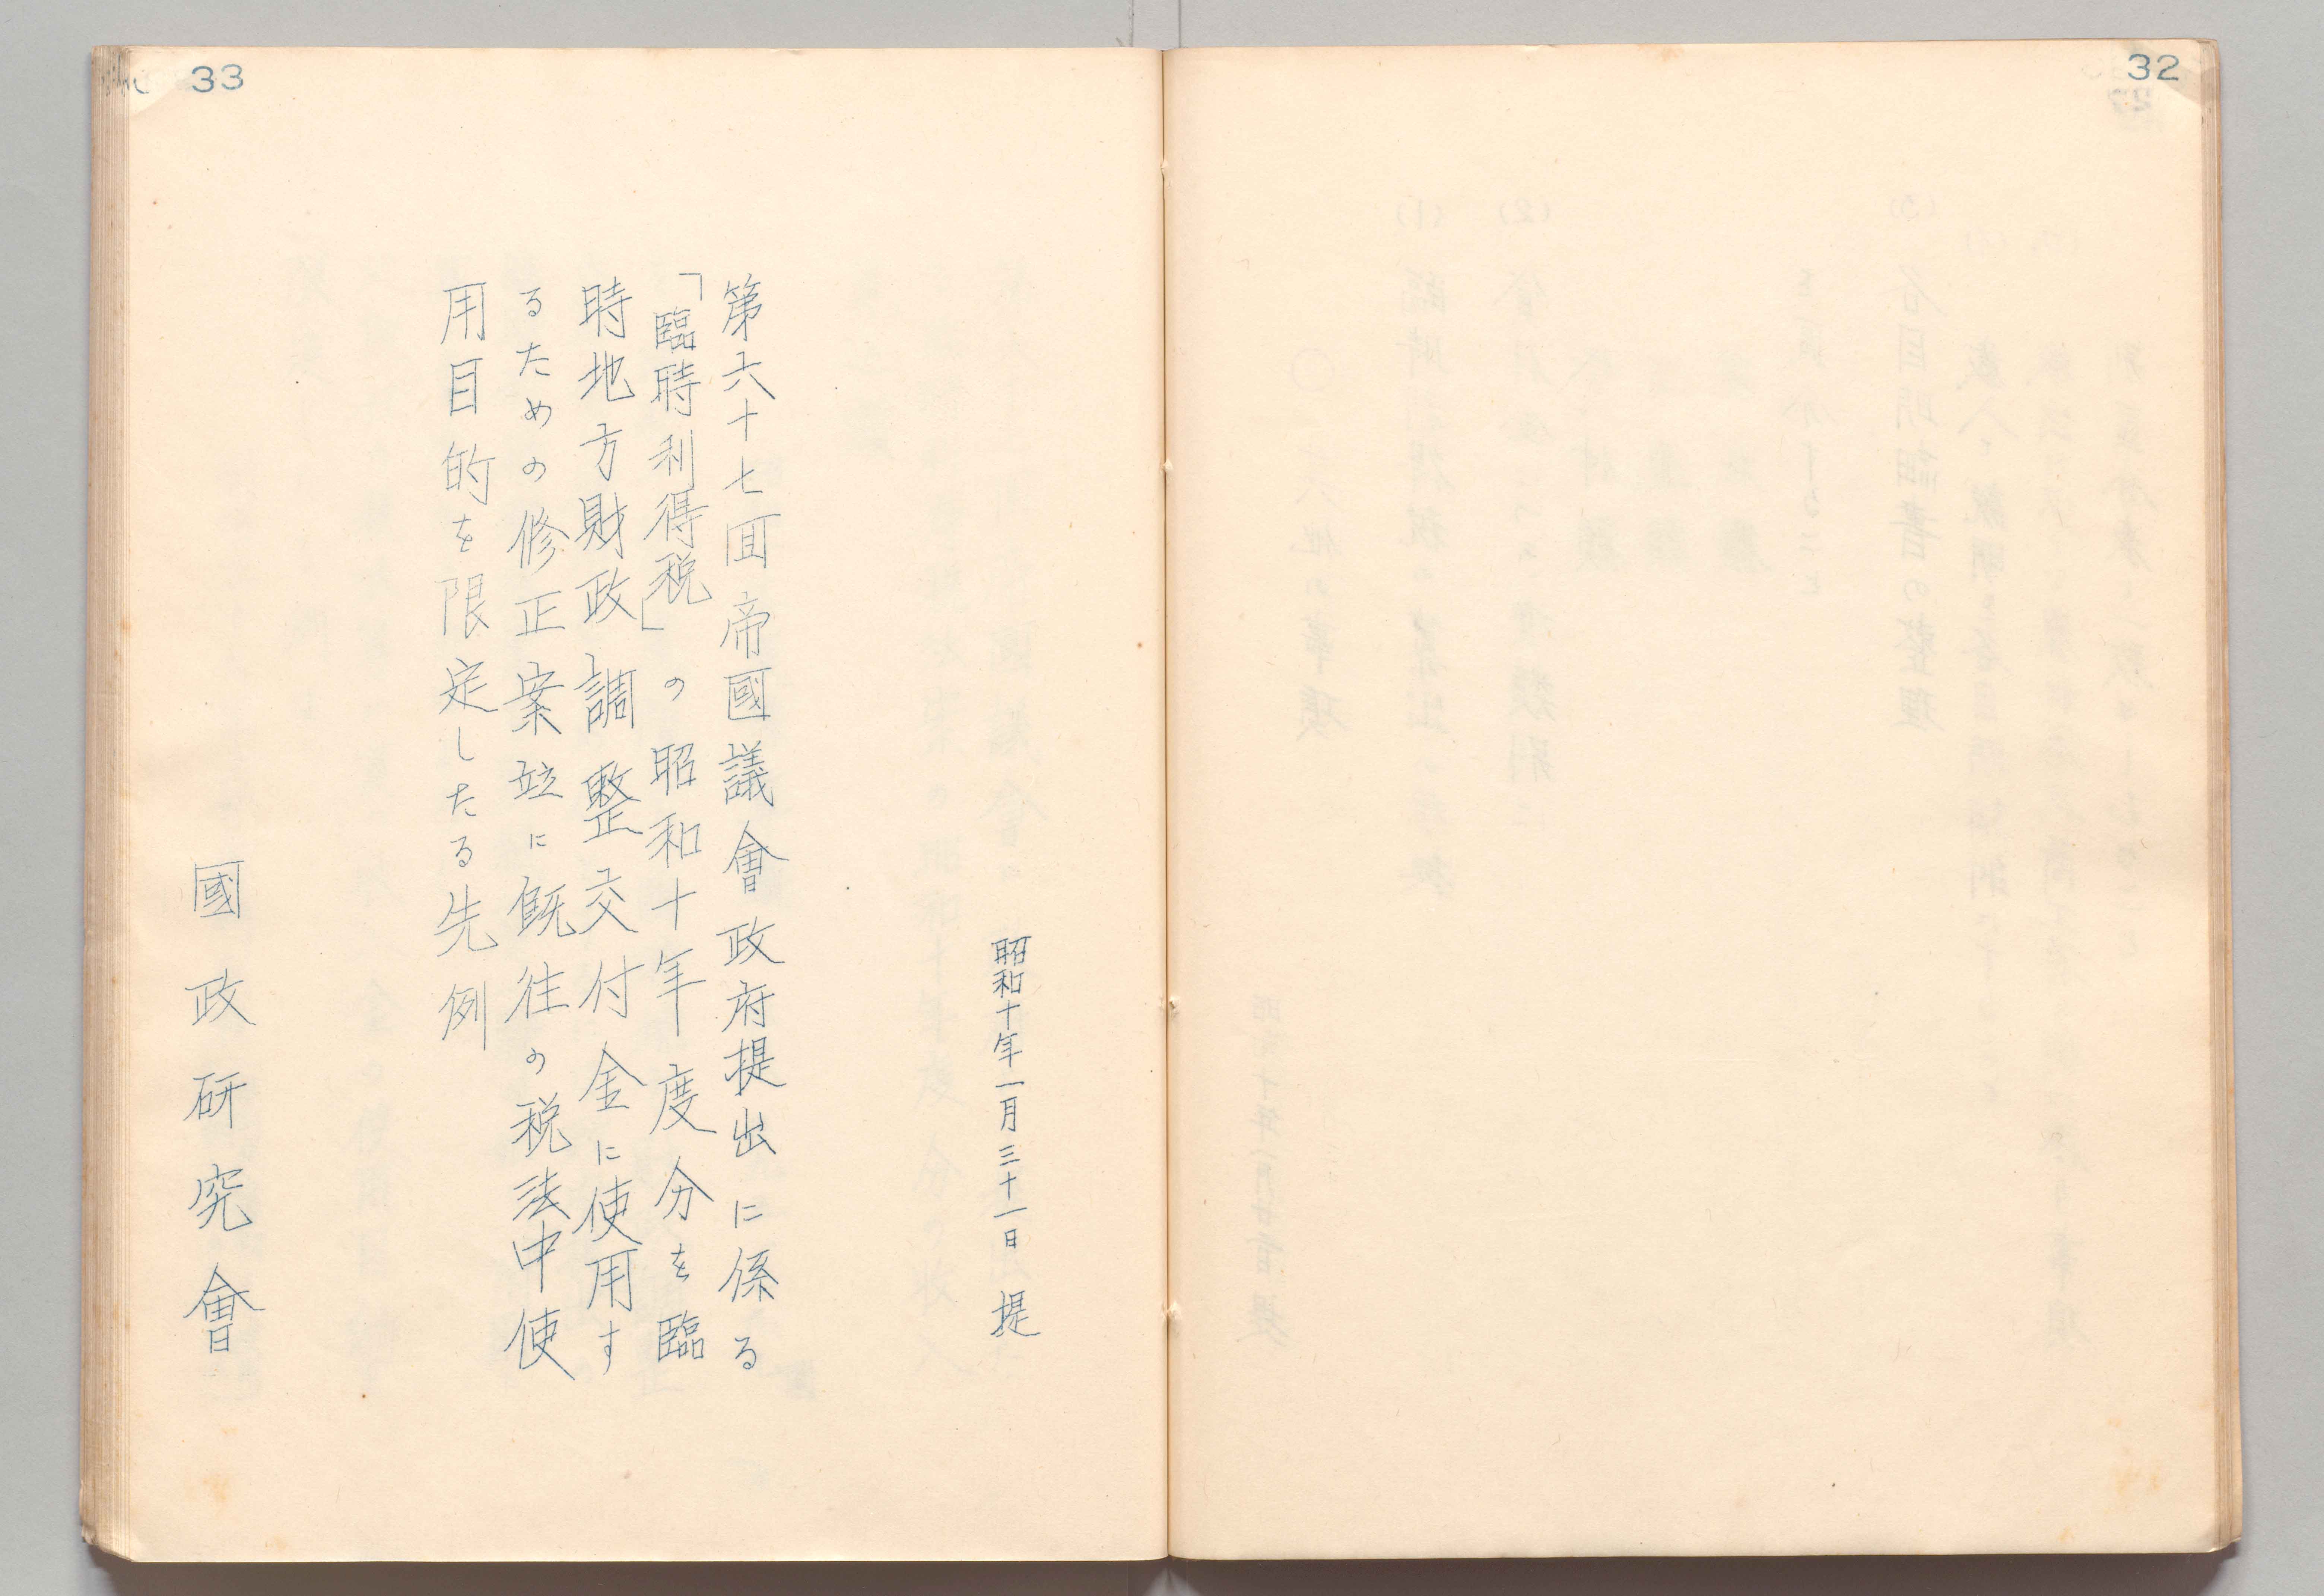 32
33
昭和十年一月三十一日 提
第六十七囬帝國議會政府提出に係る
「臨時利得税」の昭和十年度分を臨
時地方財政調整交付金に使用す
るための修正案竝に既往の税法中使
用目的を限定したる先例
國政研究會